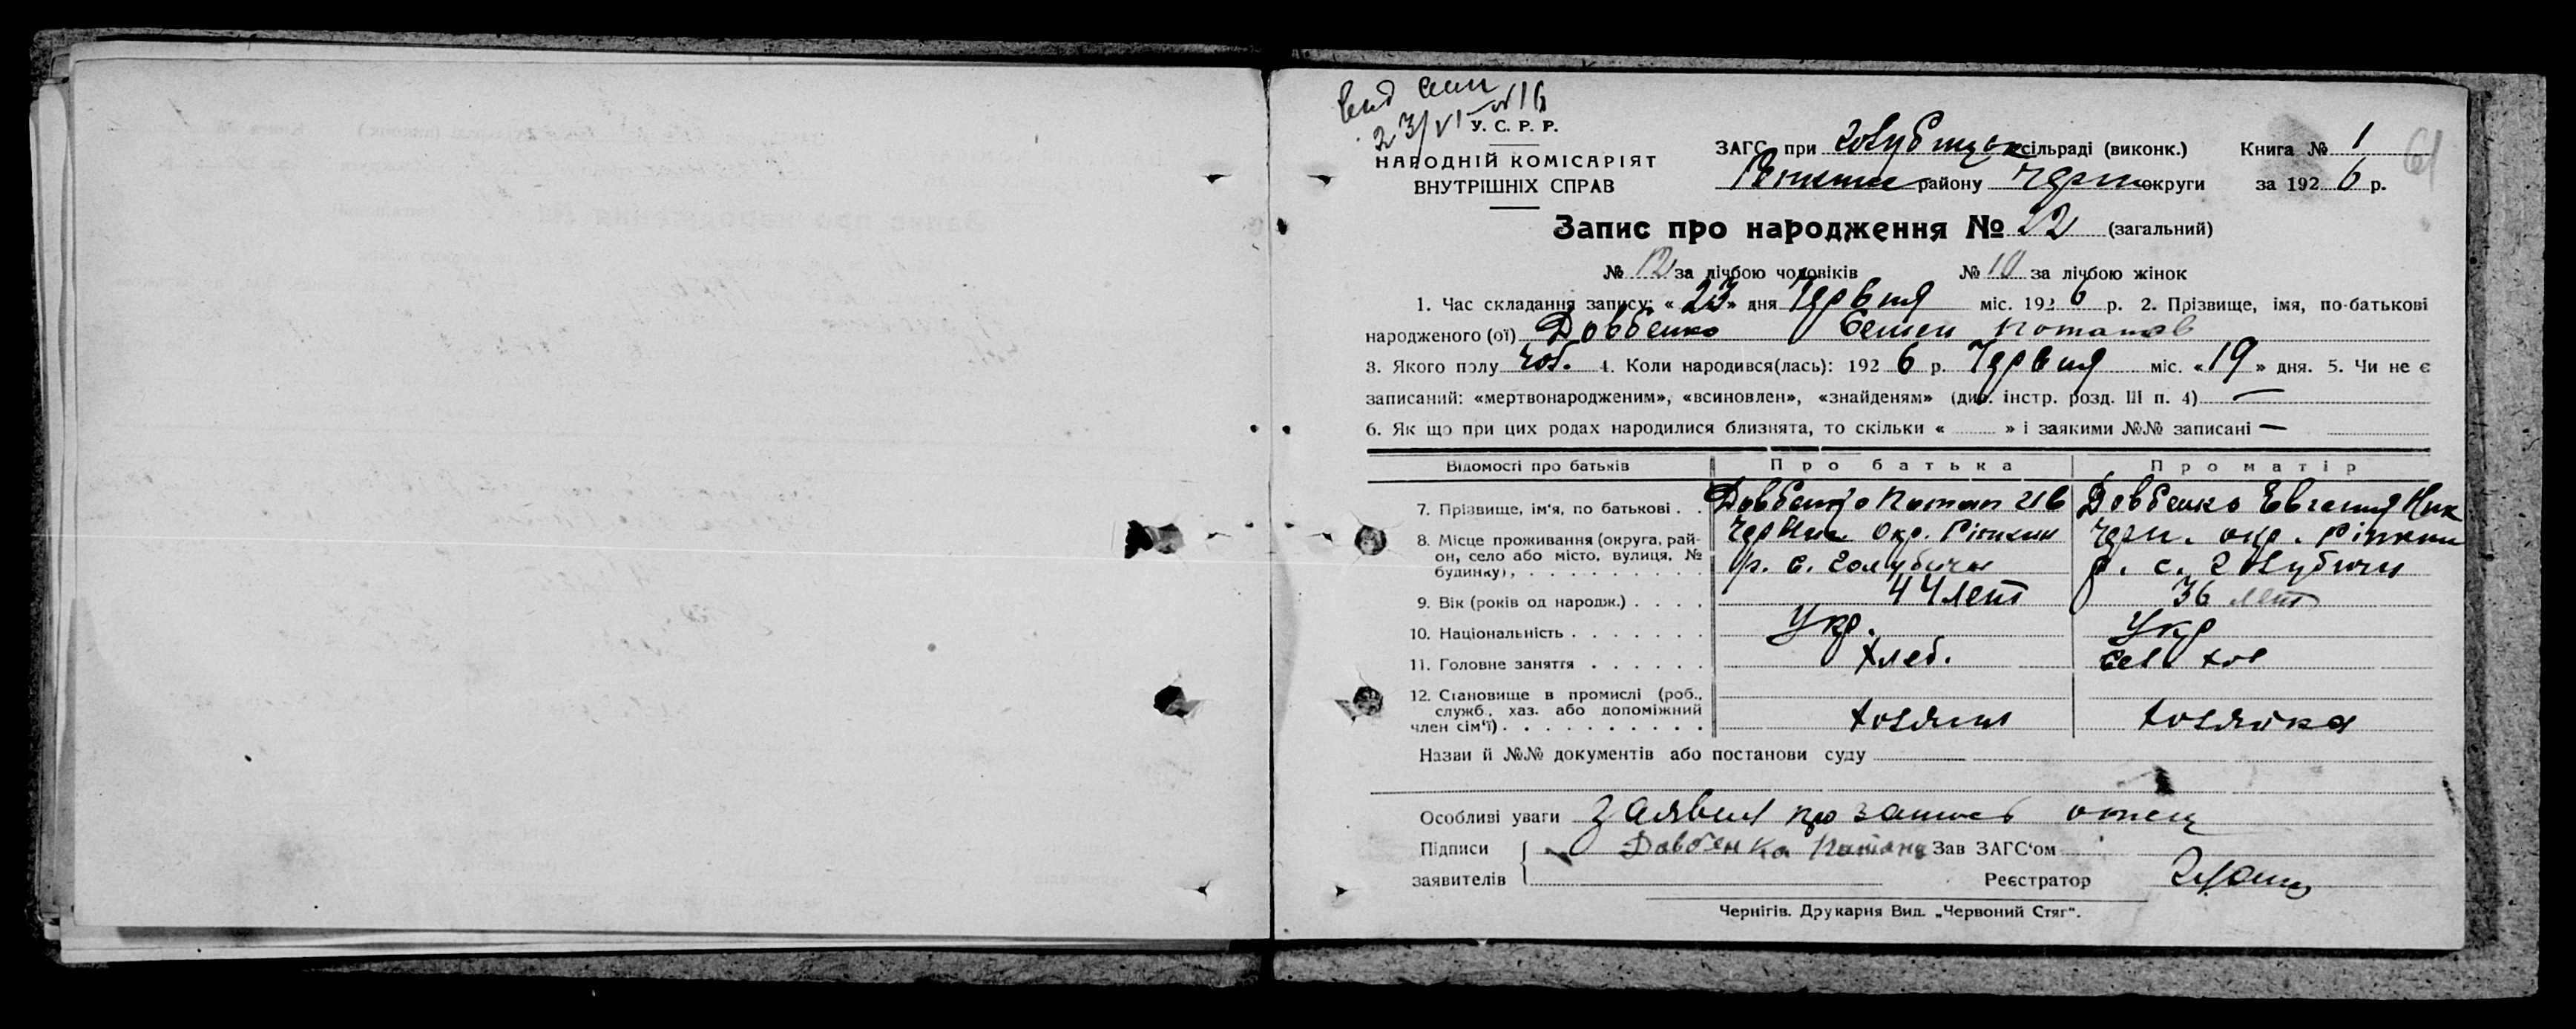 вид сви
23/VI № 16
У. С. Р. Р.
НАРОДНІЙ КОМІСАРІЯТ
ВНУТРІШНІХ СПРАВ
ЗАГС при Голубицьк сільраді (виконк.) Книга № 1
Ріпкин району Черн округи за 1926 р.
61
Запис про народження № 22 (загальний)
№ 12 за лічбою чоловіків № 10 за лічбою жінок
1. Час складання запису: «23» дня Червня міс. 1926 р. 2. Прізвище, імя, по-батькові
народженого (ої) Довбенко Семен Потапов
3. Якого полу чол. 4. Коли народився(лась): 1926 р. Червня міс. «19» дня. 5. Чи не є
записаний: «мертвонародженим», «всиновлен», «знайденям» (див. інстр. розд. III п. 4) —
6. Як що при цих родах народилися близнята, то скільки « » і заякими №№ записані —
Відомості про батьків Про батька Про матір
7. Прізвище, ім'я, по батькові . . Довбенко Потап Ив Довбенко Евгения Ник
8. Місце проживання (округа, рай- Черниг. окр. Ріпкин Черн. окр. Ріпкин
он, село або місто, вулиця, № р. с. Голубичи р. с. Голубичи
будинку), . . . . . . . . . .
9. Вік (років од народж.) . . . . 44 лет 36 лет
10. Національність . . . . . . . Укр. Укр
11. Головне заняття . . . . . . Хлеб. Сел хоз
12. Становище в промислі (роб.,
служб., хаз. або допоміжний
член сім'ї) . . . . . . . . . . хозяин хозяйка
Назви й №№ документів або постанови суду
Особливі уваги Заявил про запись отец
Підписи Довбенко Потап Зав ЗАГС'ом
заявителів Реєстратор
Чернігів. Друкарня Вид. „Червоний Стяг".